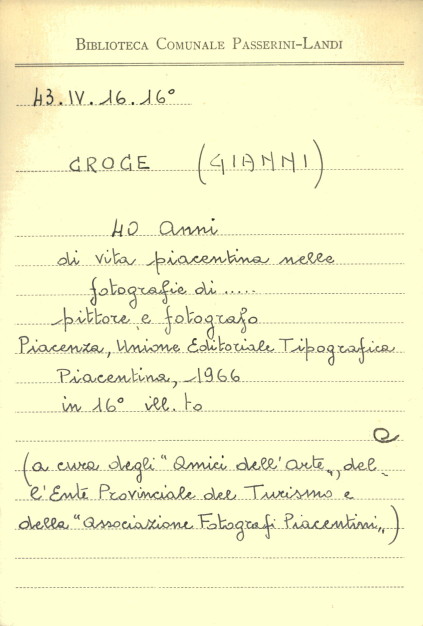 BIBLIOTECA COMUNALE PASSERINI-LANDI
43.IV.16.16°
CROCE (GIANNI)
40 anni
di vita piacentina nelle
fotografie di .....
pittore e fotografo
Piacenza, Unione Editoriale Tipografica
Piacentina, 1966
in 16° ill.to
(a cura degli "Amici dell'Arte", del-
l'Ente Provinciale del Turismo e
della "Associazione Fotografi Piacentini")